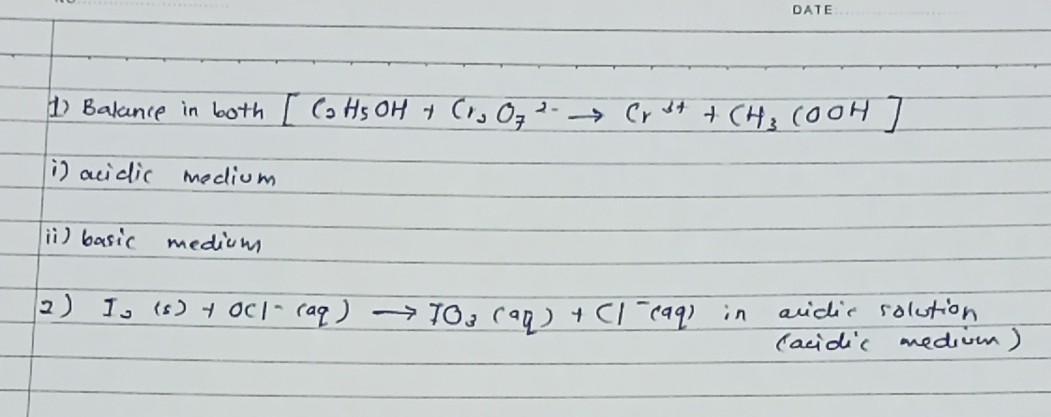 DATE
1) Balance in both [ C2H5OH + Cr2O7 2- → Cr 3+ + CH3COOH ]
i) acidic medium
ii) basic medium
2) I2 (s) + OCl- (aq) → IO3 (aq) + Cl- (aq) in acidic solution
(acidic medium)